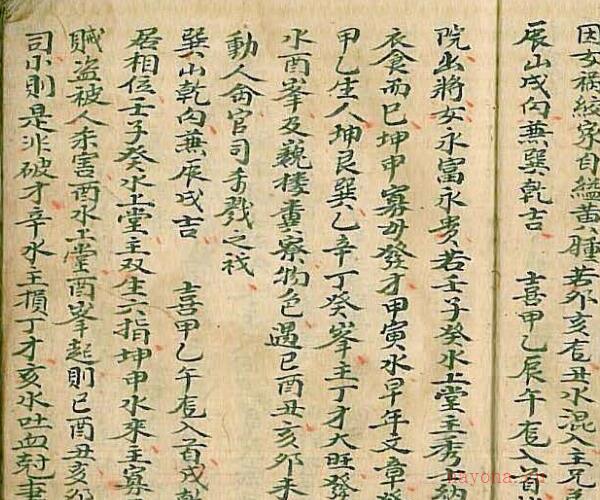 因女祸絞家自縊黄八腫若夘亥有丑水混入主兄
辰山戌向兼巽乾吉 喜甲乙辰午有入首
院出將女永富永貴若壬子癸水上堂主秀
衣食而已坤申寡母發才甲寅水早年文章
甲乙生人坤艮巽乙辛丁癸峯主丁才大旺發
水酉峯及藐樓糞寮物色遇巳酉丑亥夘未
動人命官司杀戮之祸
巽山乾向兼辰戌吉 喜甲乙午有入首戌乾
居相位壬子癸水上堂主双生六指坤申水來主寡
賊盗被人杀害酉水上堂酉峯起則巳酉丑亥夘
司小則是非破才辛水主損丁才亥水吐血尅妻
nayona.ru